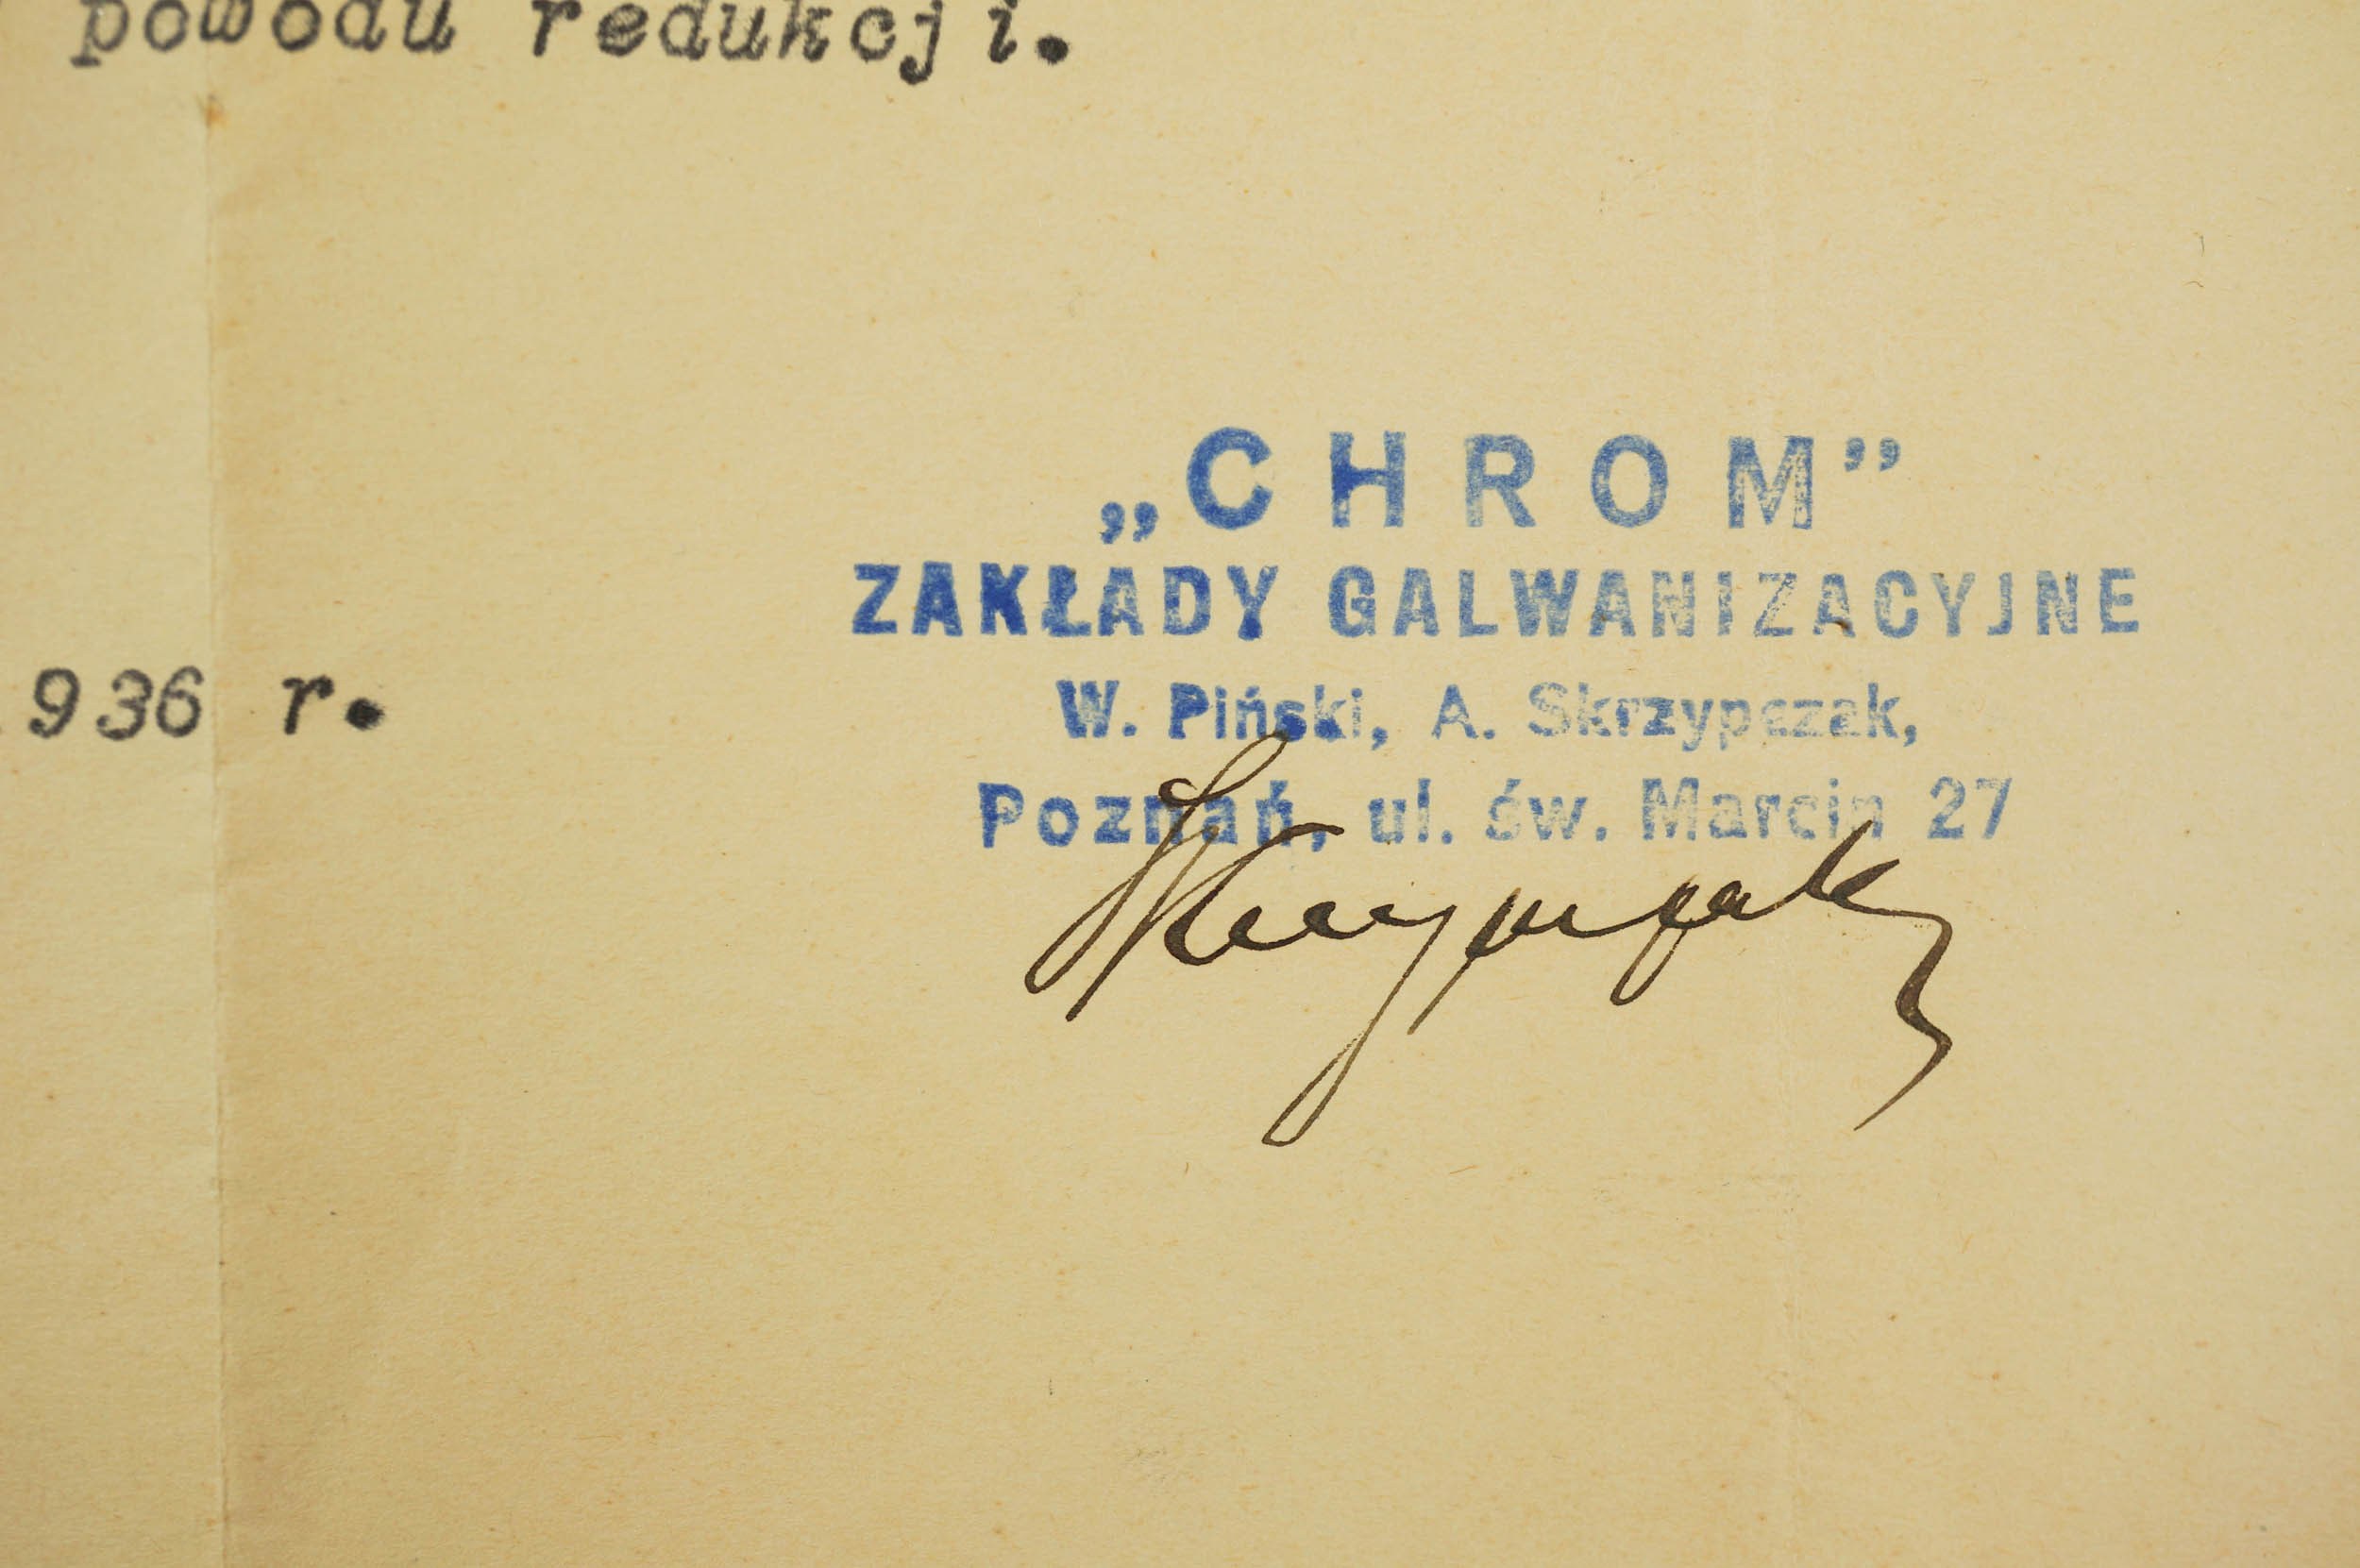 powodu redukcji.
„CHROM”
ZAKŁADY GALWANIZACYJNE
936 r.
W. Piński, A. Skrzypczak,
Poznań, ul. św. Marcin 27
Skrzypczak